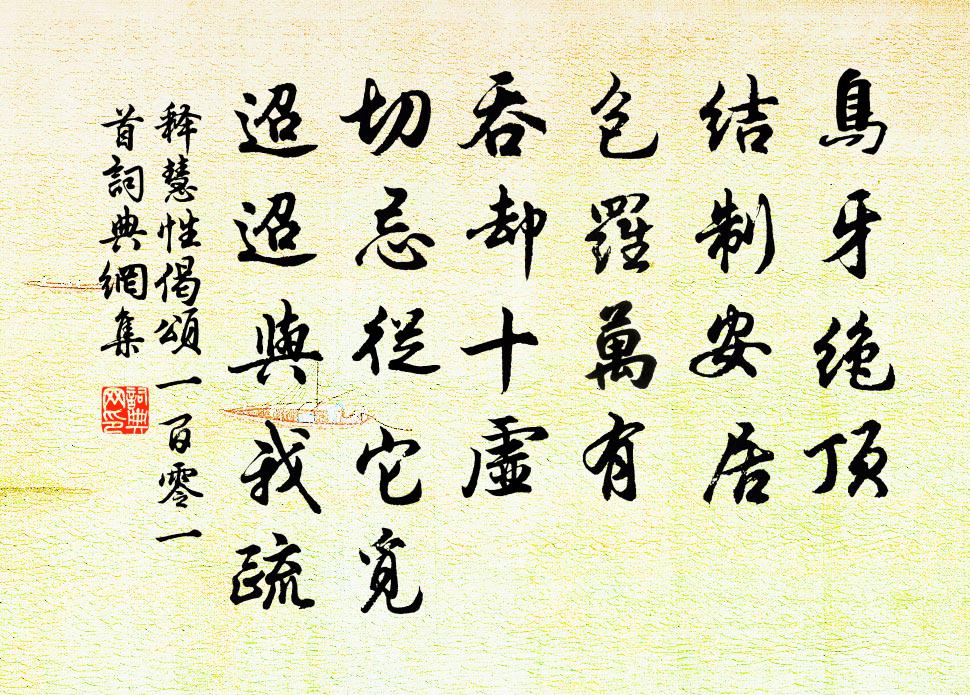 鳥牙絕頂
結制安居
包羅萬有
吞却十虛
切忌從它覓
迢迢與我疏
释慧性偈頌一百零一
首詞典網集
詞典
网印